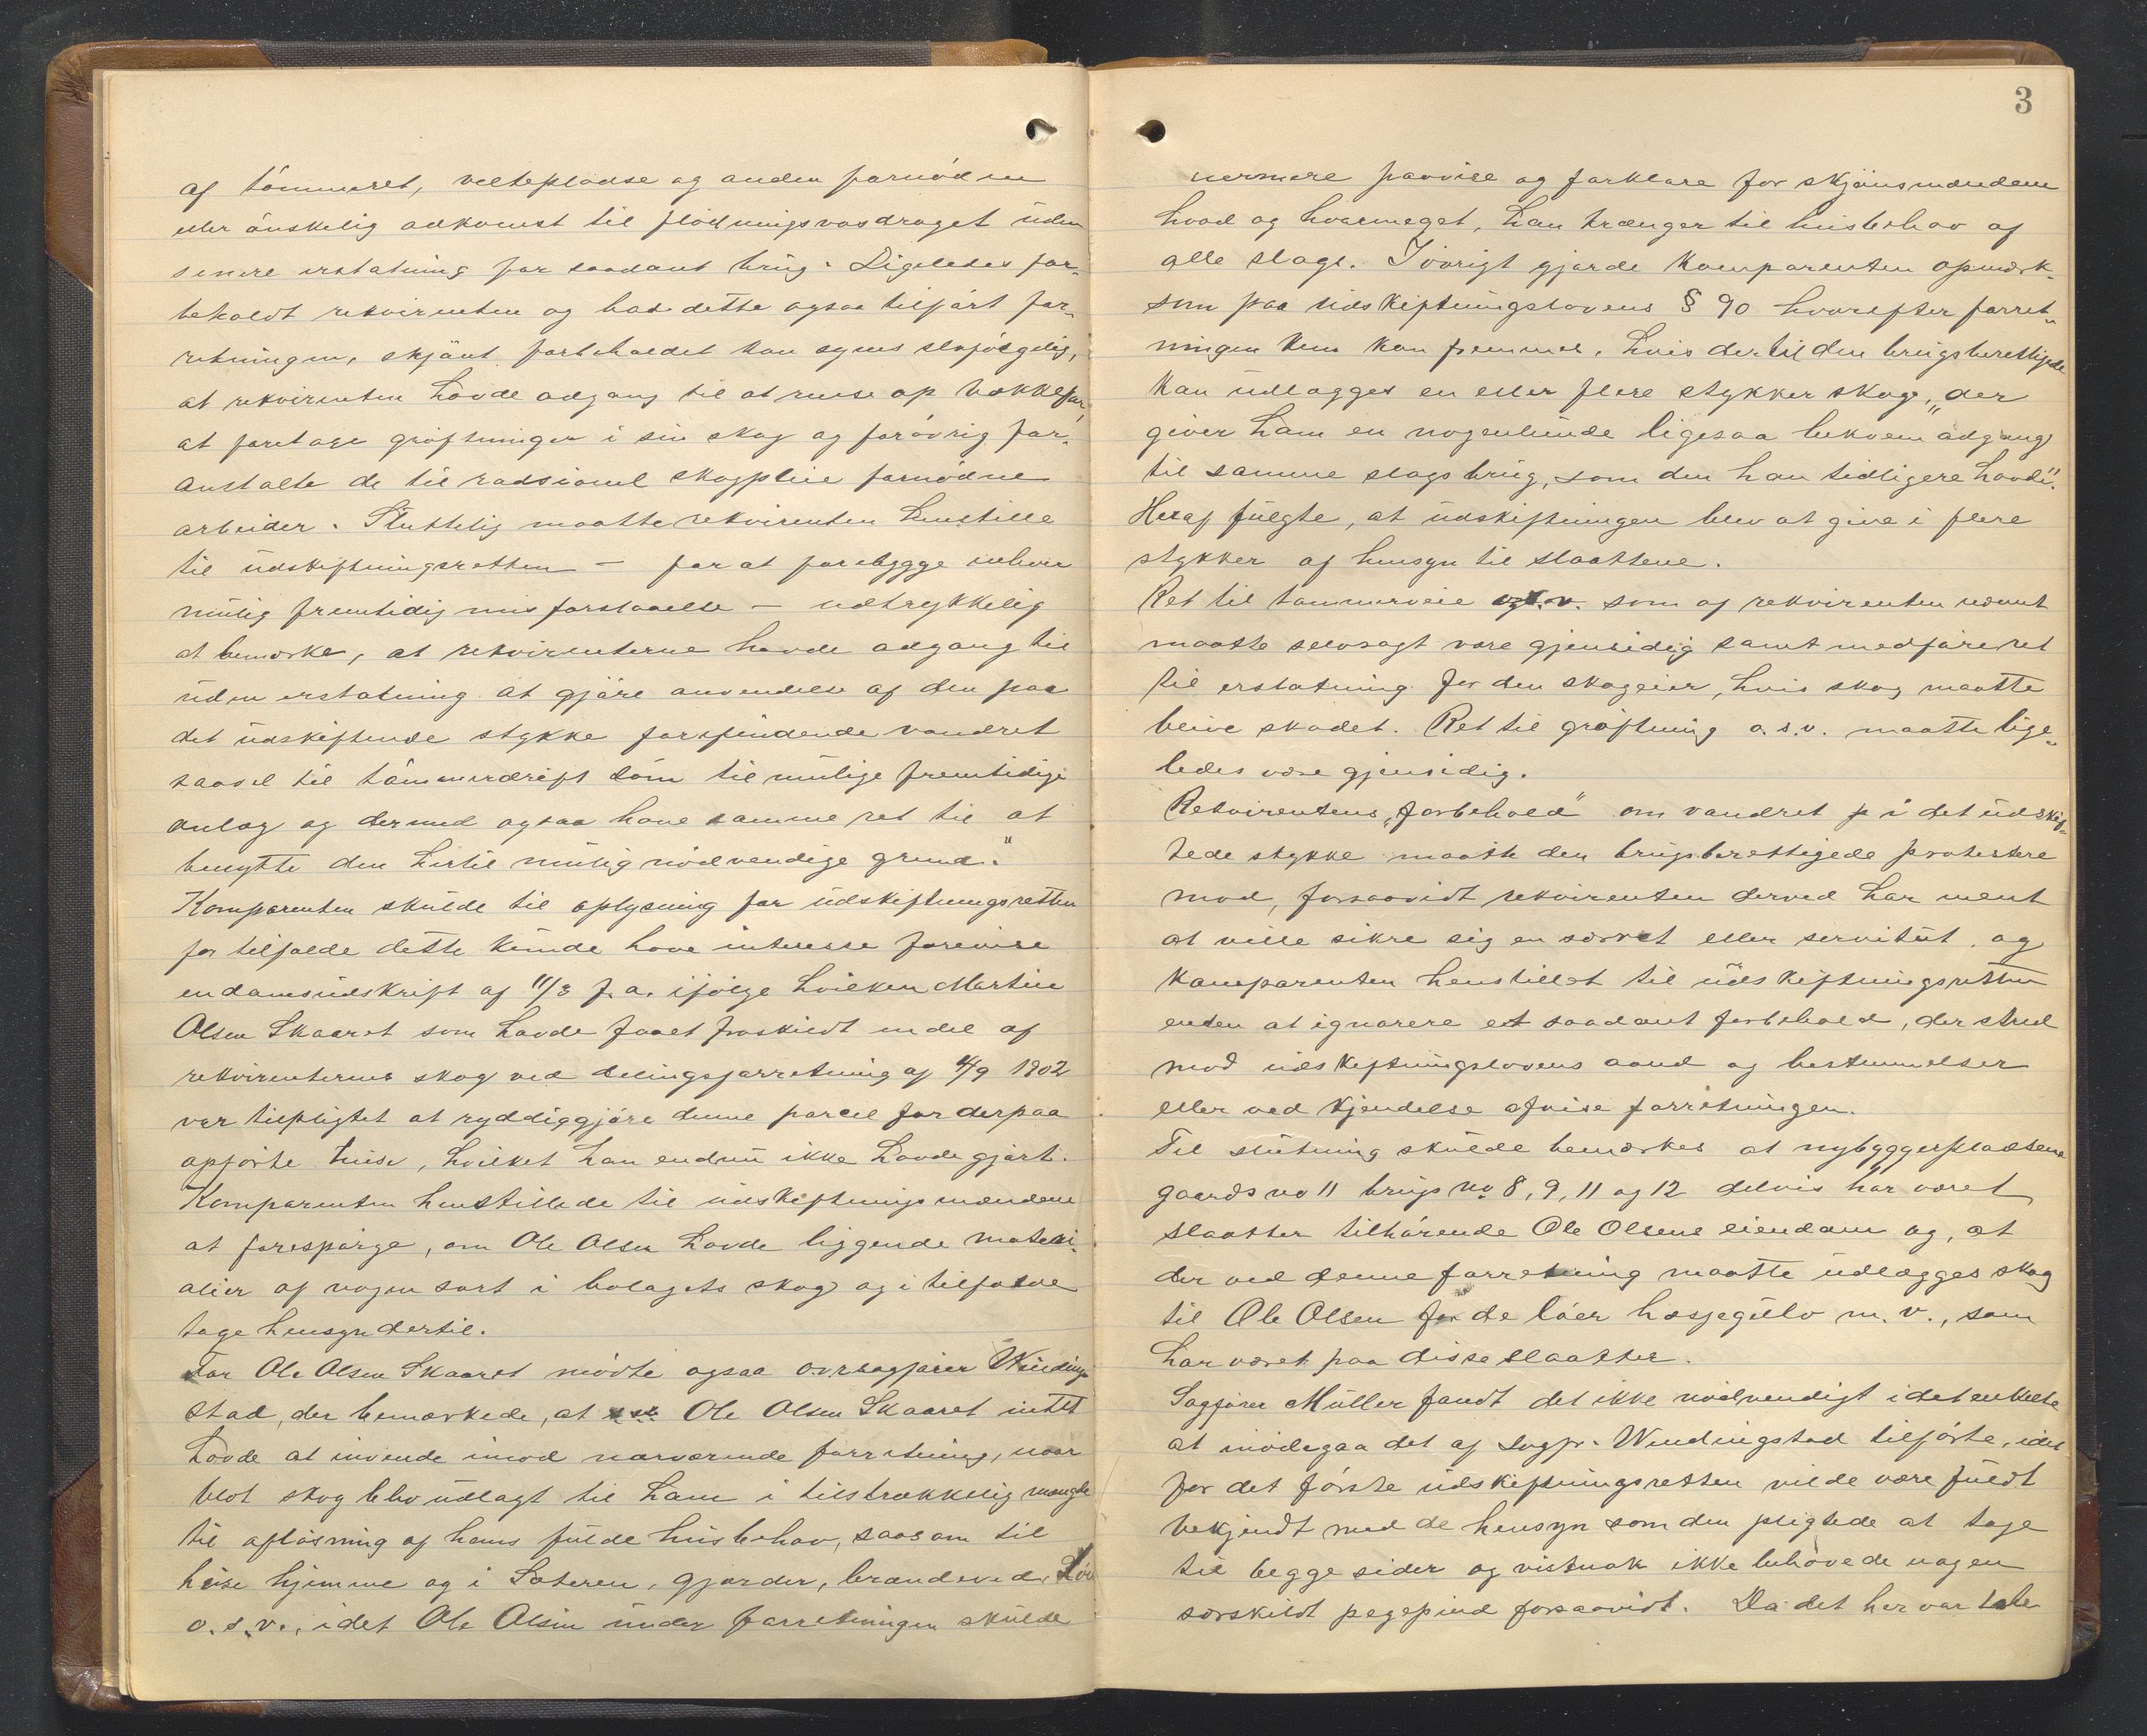 af tömmeret, veltepladse og anden fornöden
eller önskelig adkomst til flödningsvasdraget uden
senere erstatning for saadant brug. Ligeledes for-
beholdt rekvirenten og bad dette ogsaa tilfört for-
retningen, skjönt forbeholdet kan synes slöjfgelig,
at rekvirenten havde adgang til at reise op bækkefar,
at foretage gröftninger i sin skog og forövrig for-
anstalte de til radsionel skogpleie fornödne
arbeider. Sluttelig maatte rekvirenten henstille
til udskiftningsretten – for at forebygge enhver
mulig fremtidig misforstaaelse – udtrykkelig
at bemærke, at rekvirenterne havde adgang til
uden erstatning at gjöre anvendelse af den paa
det udskiftende stykke forefindende vandret
saavel til tömmerdrift som til mulige fremtidige
anlæg og dermed ogsaa have samme ret til at
benytte den hertil mulig nödvendige grund."
Komparenten skulde til oplysning for udskiftningsretten
for tilfælde dette kunde have interesse forevise
en domsudskrift af 11/3 f. a. ifölge hvilken Martin
Olsen Skaaret som havde faaet fraskildt en del af
rekvirenternes skog ved delingsforretning af 4/9 1902
var tilpligtet at ryddiggjöre denne parcel for derpaa
opförte huse, hvilket han endnu ikke havde gjört.
Komparenten henstillede til udskiftningsmændene
at forespörge, om Ole Olsen havde liggende materi-
alier af nogen sort i bolagets skog og i tilfælde
tage hensyn dertil.
For Ole Olsen Skaaret mödte ogsaa o.r.sagförer Winding-
stad, der bemærkede, at Ole Olsen Skaaret intet
havde at invende imod nærværende forretning, naar
blot skog blev udlagt til ham i tilstrækkelig mængde
til aflösning af hans fulde husbehov, saasom til
huse hjemme og i Sæteren, gjærder, brændeved, Löv
o.s.v., idet Ole Olsen under forretningen skulde
3
nærmere paavise og forklare for skjönsmændene
hvad og hvormeget, han trænger til husbehov af
alle slags. Iövrigt gjorde Komparenten opmærk-
som paa udskiftningslovens § 90 hvorefter forret-
ningen kun kan fremmes, hvis der til den brugsberettigede
kan udlægges en eller flere stykker skog, "der
giver ham en nogenlunde ligesaa bekvem adgang
til samme slags brug, som den han tidligere havde".
Heraf fulgte, at udskiftningen blev at give i flere
stykker af hensyn til slaattene.
Ret til tømmerveie o.s.v. som af rekvirenten nævnt
maatte selvsagt være gjensidig samt medföre ret
til erstatning for den skogeier, hvis skog maatte
blive skadet. Ret til gröftning o.s.v. maatte lige-
ledes være gjensidig.
Rekvirentens "forbehold" om vandret i det udskif-
tede stykke maatte den brugsberettigede protestere
mod, forsaavidt rekvirenten derved har ment
at ville sikre sig en særret eller servitut, og
Komparenten henstillet til udskiftningsretten
enten at ignorere et saadant forbehold, der stred
mod udskiftningslovens aand og bestemmelser
eller ved kjendelse afvise forretningen.
Til slutning skulde bemærkes at nybyggerpladsene
gaards no 11 brugs no 8, 9, 11 og 12 delvis har været
slaatter tilhörende Ole Olsens eiendom og, at
der ved denne forretning maatte udlægges skog
til Ole Olsen for de löer hæsjegulv m.v., som
har været paa disse slaatter.
Sagförer Müller fandt det ikke nödvendigt i det enkelte
at imödegaa det af Sagf. Windingstad tilförte, idet
for det förste udskiftningsretten vilde være fuldt
bekjendt med de hensyn som den pligtede at tage
til begge sider og vistnok ikke behövede nogen
særskildt pegepind forsaavidt. Da det her var tale